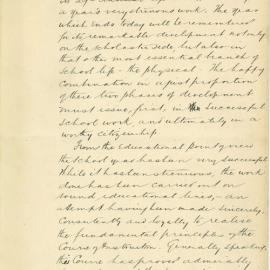 a year's very strenuous work. The year
which ends today will be remembered
for its remarkable development not only
on the scholastic side, but also in
that other most essential branch of
school life - the physical. The happy
combination in a just proportion
of these two phases of development
must issue, first, in the successful
school work and ultimately in a
worthy citizenship.
From the Educational point of view
the school year has been very successful.
While it has been strenuous, the work
done has been carried out on
sound educational lines, an
attempt having been made sincerely,
consistently and loyally to realise
the fundamental principles of the
Course of Instruction. Generally speaking,
this Course has proved admirably